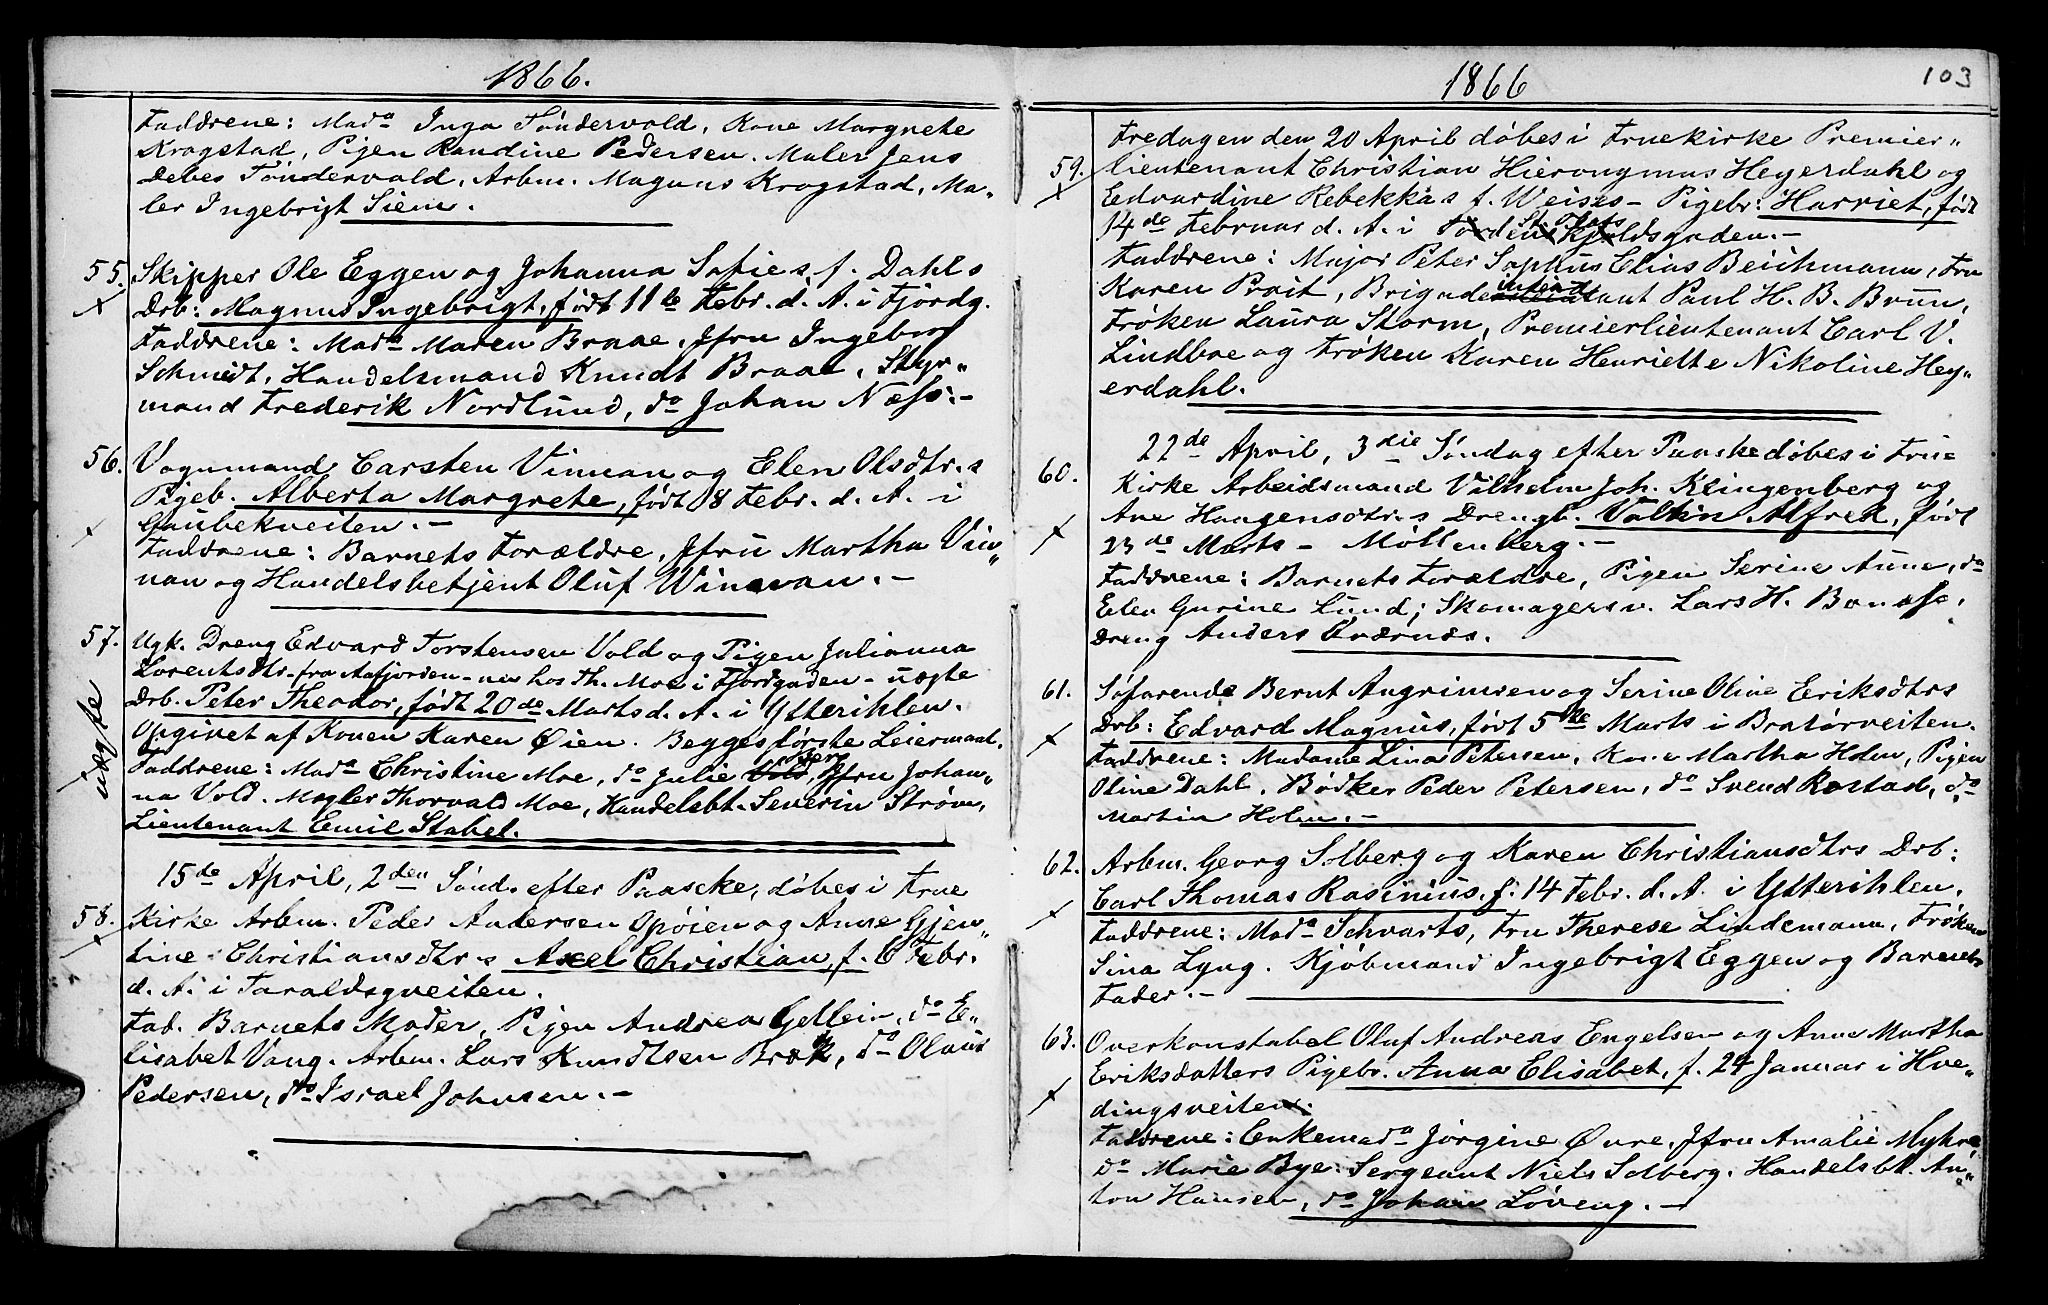 1866.
Faddrene: Mad^a Inga Tøndervold, Kone Margrete
Krogstad, Pigen Randine Pedersen. Maler Jens
Debes Tøndervold, Arbm. Magnus Krogstad, Ma-
ler Ingebrigt Siem.
55. Skipper Ole Eggen og Johanna Sofie s f. Dahls
Drb: Magnus Ingebrigt, født 11te Febr. d. A. i Fjordg.
Faddrene: Mad^a Maren Braae, Jfru Ingeborg
Schmidt, Handelsmand Knudt Braae, Styr-
mand Frederik Nordlund, do Johan Næss.-
56. Vognmand Carsten Vinnan og Elen Olsdtr. s
Pigeb. Alberta Margrete, født 8 Febr. d. A. i
Gaubekveiten.-
Faddrene: Barnets Forældre, Jfru Martha Vin-
nan og Handelsbetjent Oluf Winnan.-
57. Ugk. Dreng Edvard Torstensen Vold og Pigen Julianna
Lorentsdtr. fra Aafjorden - nu hos Th. Moe i Fjordgaden - uægte
Drb. Peter Theodor, født 20de Marts d. A. i Ytterihlen.
uægte
Opgivet af Konen Karen Øien. Begges første Leiermaal.
Faddrene: Mad^a Christine Moe, do Julie Vold, Jfru Johan-
na Vold. Mægler Thorvald Moe, Handelsbt. Severin Strøm,
Lieutenant Emil Stabel.
15de April, 2den Sønd. efter Paaske, døbes i Frue
58. Kirke Arbm. Peder Andersen Opøien og Anne Gjen-
tine Christiansdtr. s Axel Christian, f. 6 Febr.
d. A. i Taraldsgveiten.
Fad. Barnets Moder, Pigen Andrea Gellein, do E-
lisabet Vang. Arbm. Lars Knudtsen Bræk, do Olaus
Pedersen, do Israel Johnsen.-
1866
103
Fredagen den 20 April døbes i Fruekirke Premier-
59. lieutenant Christian Hieronymus Heyerdahl og
Edvardine Rebekka s f. Weises - Pigebr: Harriet, født
St. Olafs
14de Februar d. A. i Tordenskjoldsgaden.-
Faddrene: Major Peter Sophus Elias Beichmann, Fru
Karen Prait, Brigadeintendant Paul H. B. Brun,
Frøken Laura Storm, Premierlieutenant Carl V.
Lindboe og Frøken Karen Henriette Nikoline Hey-
erdahl.
22de April, 3die Søndag efter Paaske døbes i Frue
60. Kirke Arbeidsmand Vilhelm Joh. Klingenberg og
Ane Haagensdtr. s Drengb. Valkin Alfred, født
23de Marts - Møllenberg.-
Faddrene: Barnets Forældre, Pigen Serine Aune, do
Elen Gurine Lund; Skomagersv. Lars H. Bonæss,
Dreng Anders Qværnæs.
61. Søfarende Bernt Angrimsen og Serine Oline Eriksdtrs
Drb: Edvard Magnus, født 5te Marts i Bratørveiten.
Faddrene: Madame Lina Petersen, Kone Martha Holm, Pigen
Oline Dahl. Bødker Peder Petersen, do Svend Rostad, do
Martin Holm.-
62. Arbm. Georg Solberg og Karen Christiansdtrs Drb:
Carl Thomas Rasinius, f: 14 Febr. d. A. i Ytterihlen.
Faddrene: Mad^a Schvarts, Fru Therese Lindemann, Frøken
Sina Lyng. Kjøbmand Ingebrigt Eggen og Barnets
Fader.-
63. Overkonstabel Oluf Andreas Engelsen og Anne Martha
Eriksdatters Pigebr. Anna Elisabet, f. 24 Januar i Hve-
dingsveiten.
Faddrene: Enkemad^a Jørgine Øvre, Jfru Amalie Myhre
do Marie Bye. Sergeant Niels Solberg. Handelsbt. An-
ton Hansen, do Johan Løveng.-